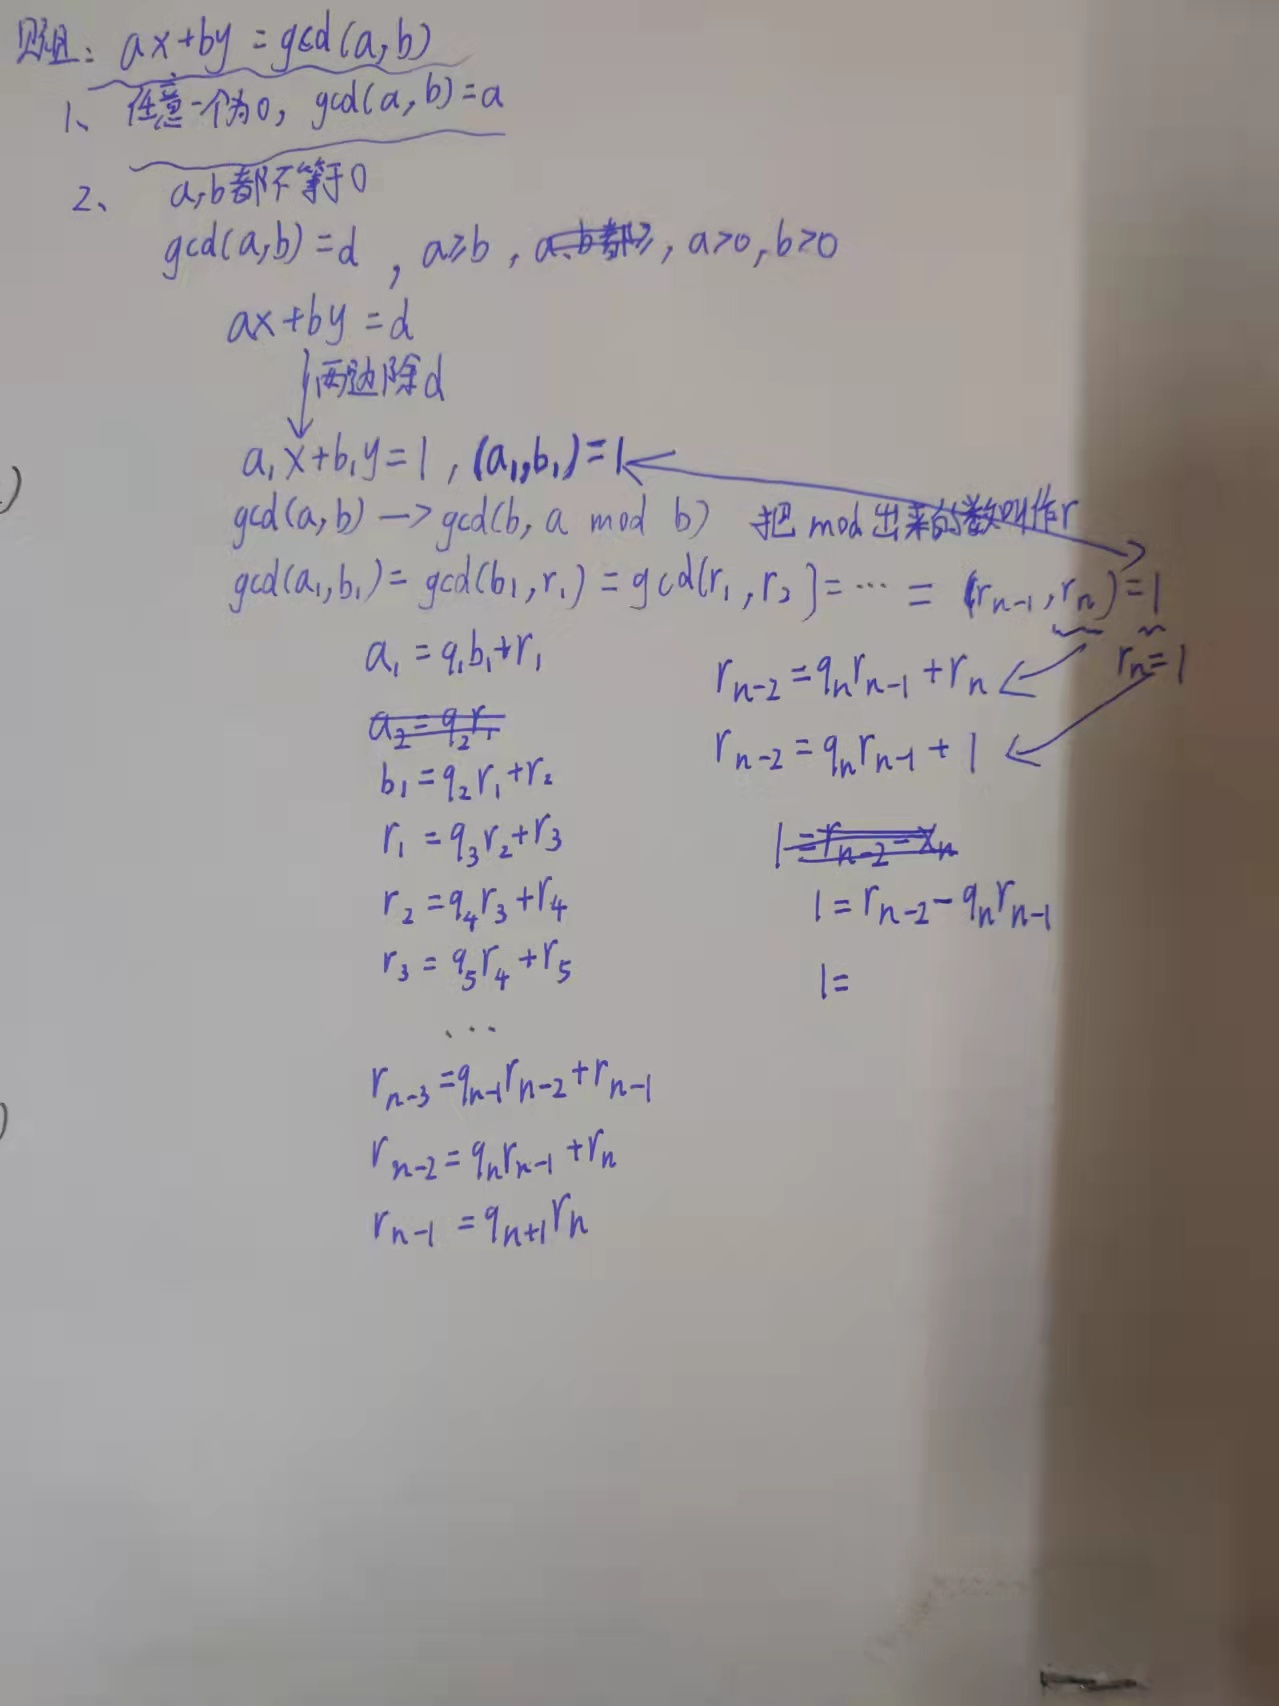 贝祖: ax+by=gcd(a,b)
1、任意一个为0, gcd(a,b)=a
2、a,b都不等于0
gcd(a,b)=d, a≥b, a>0, b>0
ax+by=d
两边除d
a₁x+b₁y=1, (a₁,b₁)=1
gcd(a,b)→gcd(b, a mod b) 把mod出来的数叫作r
gcd(a₁,b₁)=gcd(b₁,r₁)=gcd(r₁,r₂)=…=(rₙ₋₁,rₙ)=1
rₙ=1
a₁=q₁b₁+r₁
a₂=q₂r₁
b₁=q₂r₁+r₂
r₁=q₃r₂+r₃
r₂=q₄r₃+r₄
r₃=q₅r₄+r₅
...
rₙ₋₃=qₙ₋₁rₙ₋₂+rₙ₋₁
rₙ₋₂=qₙrₙ₋₁+rₙ
rₙ₋₁=qₙ₊₁rₙ
rₙ₋₂=qₙrₙ₋₁+rₙ
rₙ₋₂=qₙrₙ₋₁+1
1=rₙ₋₂-xₙ
1=rₙ₋₂-qₙrₙ₋₁
1=